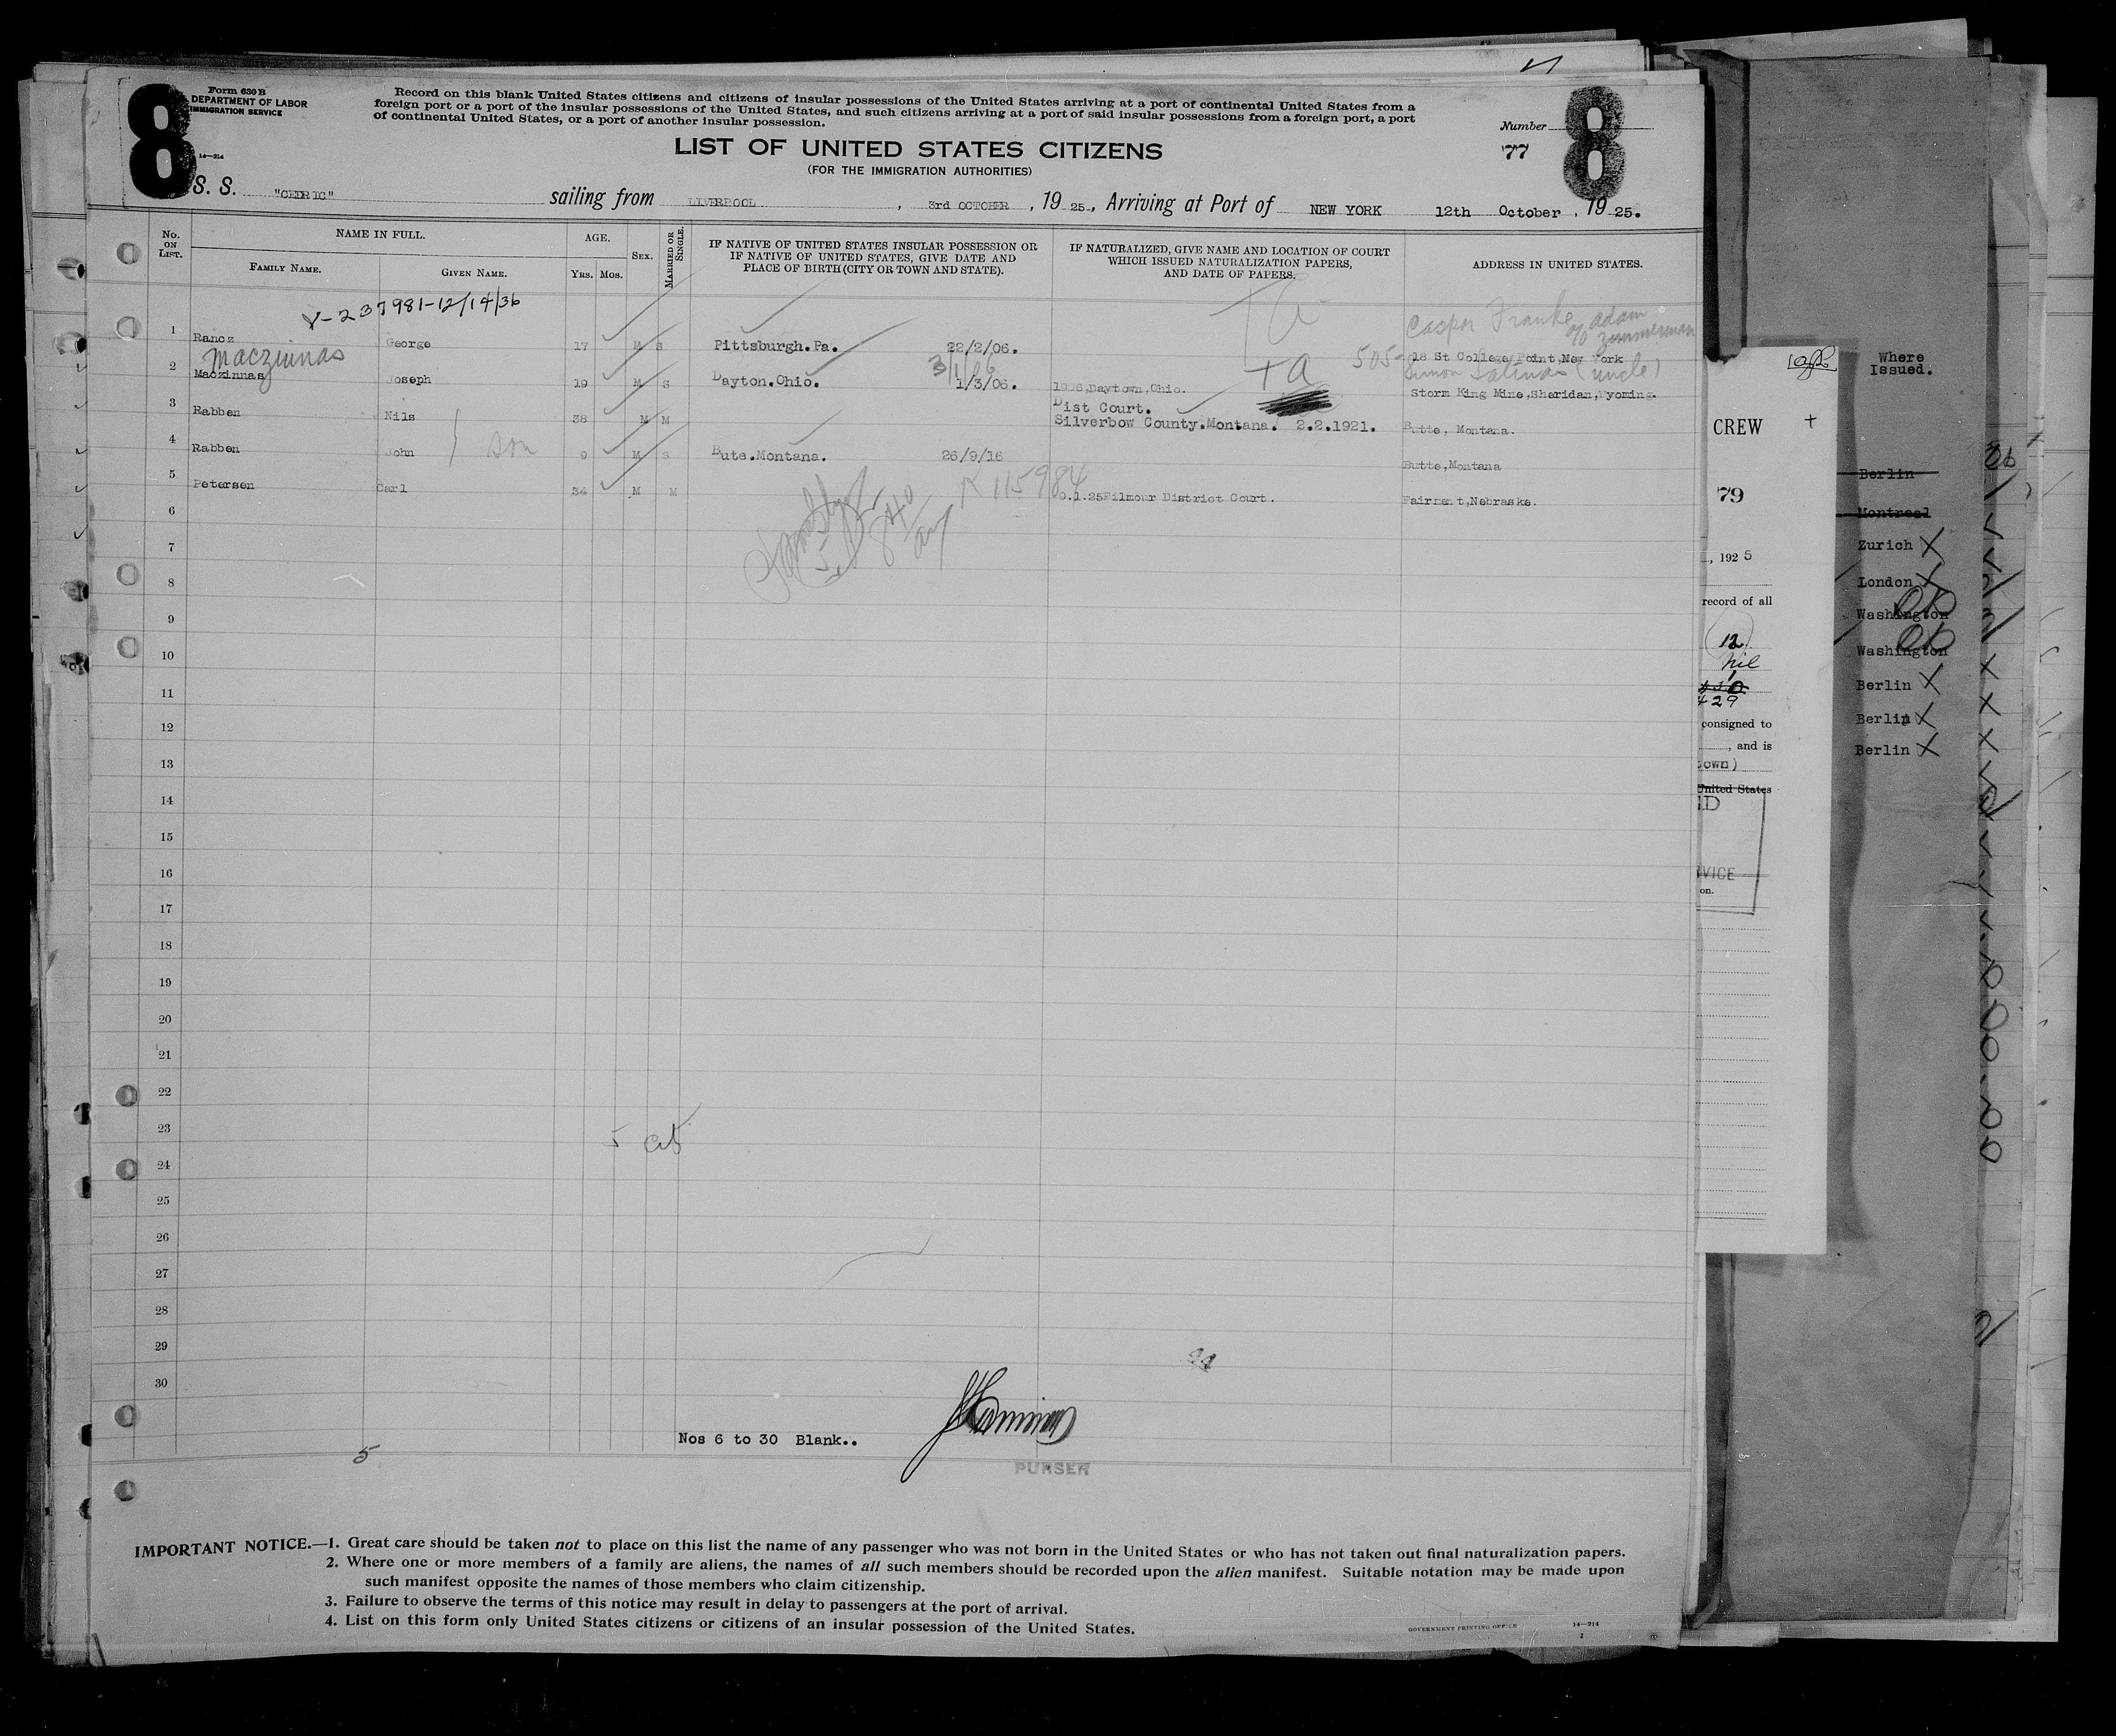 8
Form 630 B
DEPARTMENT OF LABOR
IMMIGRATION SERVICE
14—214
Record on this blank United States citizens and citizens of insular possessions of the United States arriving at a port of continental United States from a
foreign port or a port of the insular possessions of the United States, and such citizens arriving at a port of said insular possessions from a foreign port, a port
of continental United States, or a port of another insular possession.
Number
8
77
LIST OF UNITED STATES CITIZENS
(FOR THE IMMIGRATION AUTHORITIES)
S. S. "CEDRIC" sailing from LIVERPOOL, 3rd OCTOBER, 19 25., Arriving at Port of NEW YORK 12th October, 19 25.
No. ON LIST. NAME IN FULL. FAMILY NAME. GIVEN NAME. AGE. Yrs. Mos. SEX. MARRIED OR SINGLE.
IF NATIVE OF UNITED STATES INSULAR POSSESSION OR
IF NATIVE OF UNITED STATES, GIVE DATE AND
PLACE OF BIRTH (CITY OR TOWN AND STATE).
IF NATURALIZED, GIVE NAME AND LOCATION OF COURT
WHICH ISSUED NATURALIZATION PAPERS,
AND DATE OF PAPERS.
ADDRESS IN UNITED STATES.
V-237981-12/14/36
Caspar Franke c/o adam
Zimmerman
1 Rancz George 17 M S Pittsburgh.Pa. 22/2/06. 18 St College Point,New York
Maczuinas 3/1/06 + a 505 Simon (uncle)
2 Maczinnas Joseph 19 M S Dayton.Ohio. 1/3/06. 1906,Daytown,Ohio. Storm King Mine,Sheridan,Wyoming.
3 Rabben Nils 38 M M Dist Court.
Silverbow County.Montana. 2.2.1921. Butte, Montana.
4 Rabben John son 9 M S Bute.Montana. 26/9/16 Butte,Montana
5 Petersen Carl 34 M M R 115984 .1.25Filmour District Court. Fairmont,Nebraske.
6
7
8
9
10
11
12
13
14
15
16
17
18
19
20
21
22
23
5 cit
24
25
26
27
28
29
30
Nos 6 to 30 Blank..
PURSER
5
IMPORTANT NOTICE.—1. Great care should be taken not to place on this list the name of any passenger who was not born in the United States or who has not taken out final naturalization papers.
2. Where one or more members of a family are aliens, the names of all such members should be recorded upon the alien manifest. Suitable notation may be made upon
such manifest opposite the names of those members who claim citizenship.
3. Failure to observe the terms of this notice may result in delay to passengers at the port of arrival.
4. List on this form only United States citizens or citizens of an insular possession of the United States.
GOVERNMENT PRINTING OFFICE 14—214
CREW
79
, 192 5
record of all
12
nil
429
consigned to
, and is
town)
United States
VICE
on.
Where
Issued.
Berlin
Montreal
Zurich X
London X
Washington
Washington
Berlin X
Berlin X
Berlin X